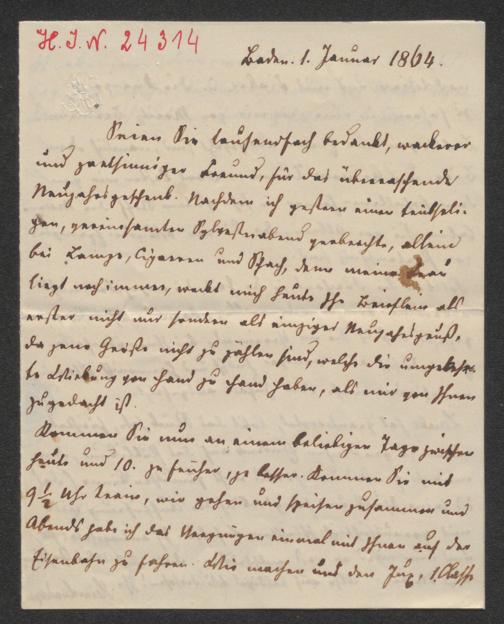 H. I. N. 24314
Baden. 1. Januar 1864.
Seien Sie tausendfach bedankt, wackerer
und zartsinniger Freund, für das überraschende
Neujahrsgeschenk. Nachdem ich gestern einen trübseli-
gen, vereinsamten Sylvesterabend verbrachte, allein
bei Lampe, Cigarren und Schach, denn meine Frau
liegt noch immer, weckt mich heute Ihr Brieflein als
erster nicht nur sondern als einziger Neujahrsgruß,
da jene Grüße nicht zu zählen sind, welche die umgekehr-
te Wirkung von Hand zu Hand haben, als mir von Ihnen
zugedacht ist.
Kommen Sie nun an einem beliebigen Tage zwischen
heute und 10. je früher, je besser. Kommen Sie mit
9 1/2 Uhr Train, wir gehen und speisen zusammen und
Abends habe ich das Vergnügen einmal mit Ihnen auf der
Eisenbahn zu fahren. Wir machen uns den Jux, 1. Classe